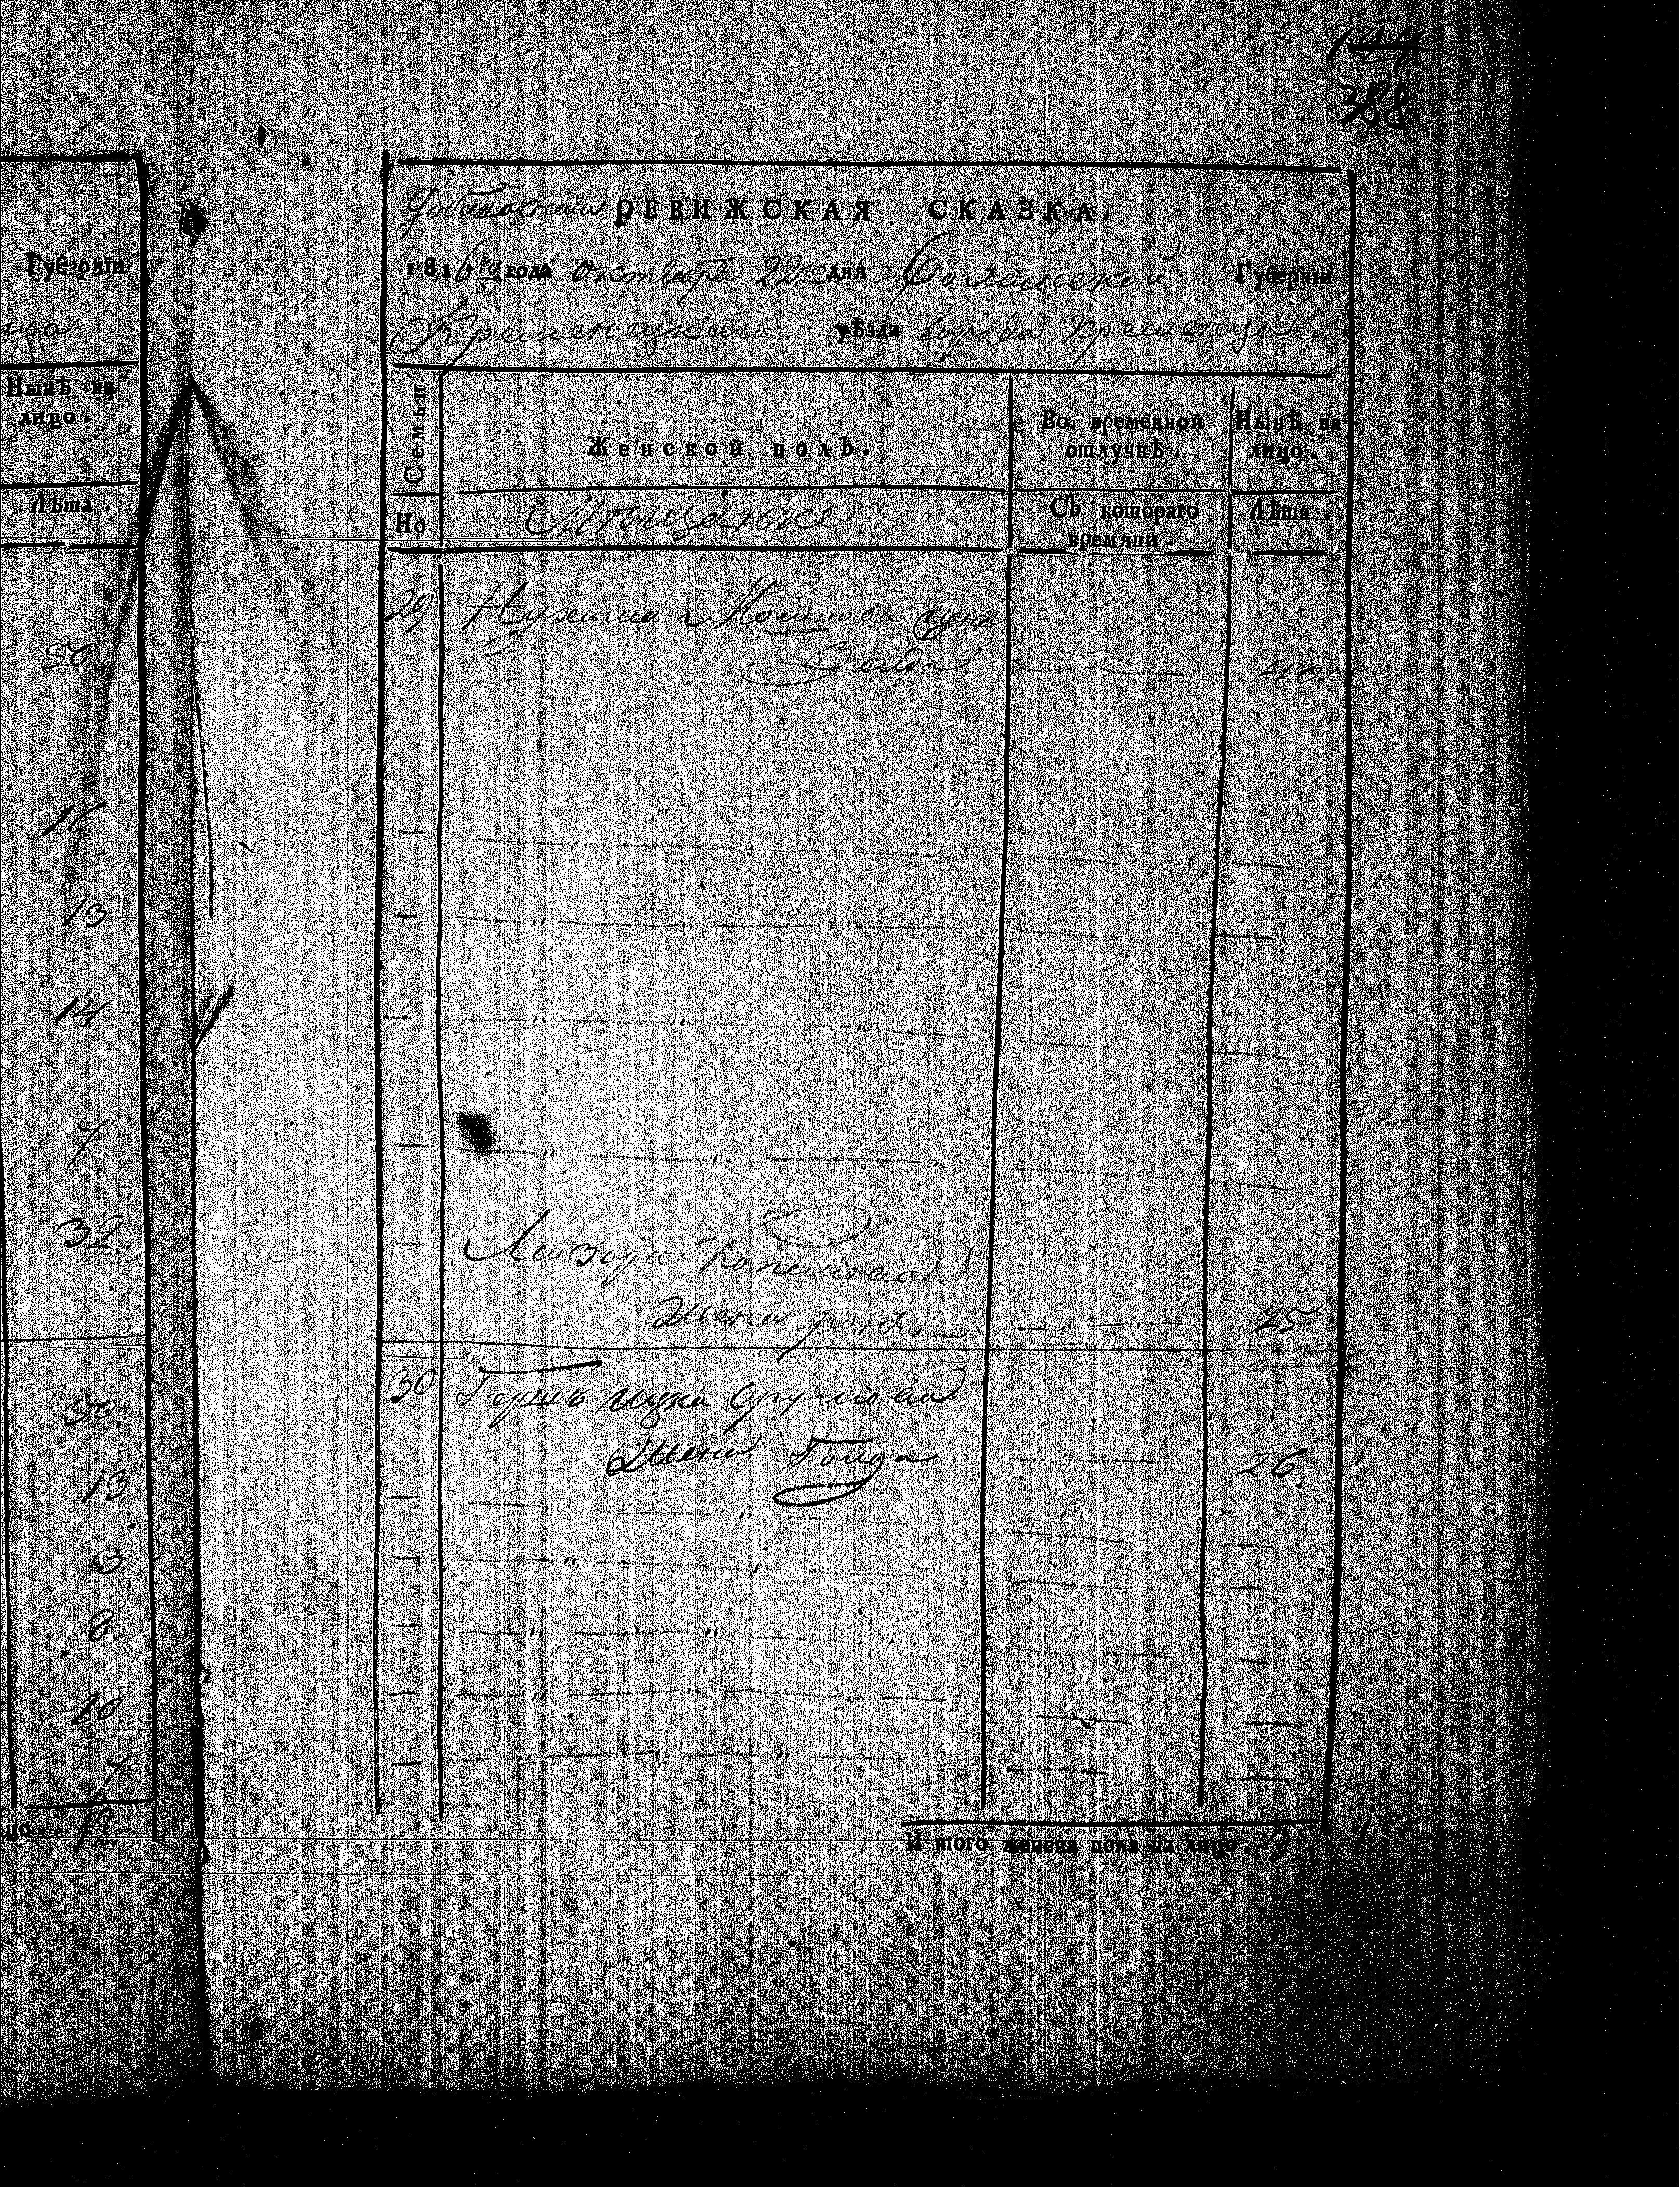 144
388
Губернїи
ца
Нынѣ на
лицо.
Лѣта.
50
16.
13
14
7
32.
50.
13
3
8.
10
7
цо. 12.
Добавочная РЕВИЖСКАЯ СКАЗКА.
1816го года октября 22го дня Волынской Губернїи
Кременецкаго уѣзда города Кременца
Семьи.
Женской полъ.
Во временной отлучкѣ.
Нынѣ на лицо.
Но.
Мѣщанке
Съ котораго времяни.
Лѣта.
29 Нухима Мошкова жена
Зелда — — 40.
Лейзора
Жена — „ — „ — 25
30 Гершъ ицка Сруліова
Жена Голда — „ — 26.
И того женска пола на лицо. 3